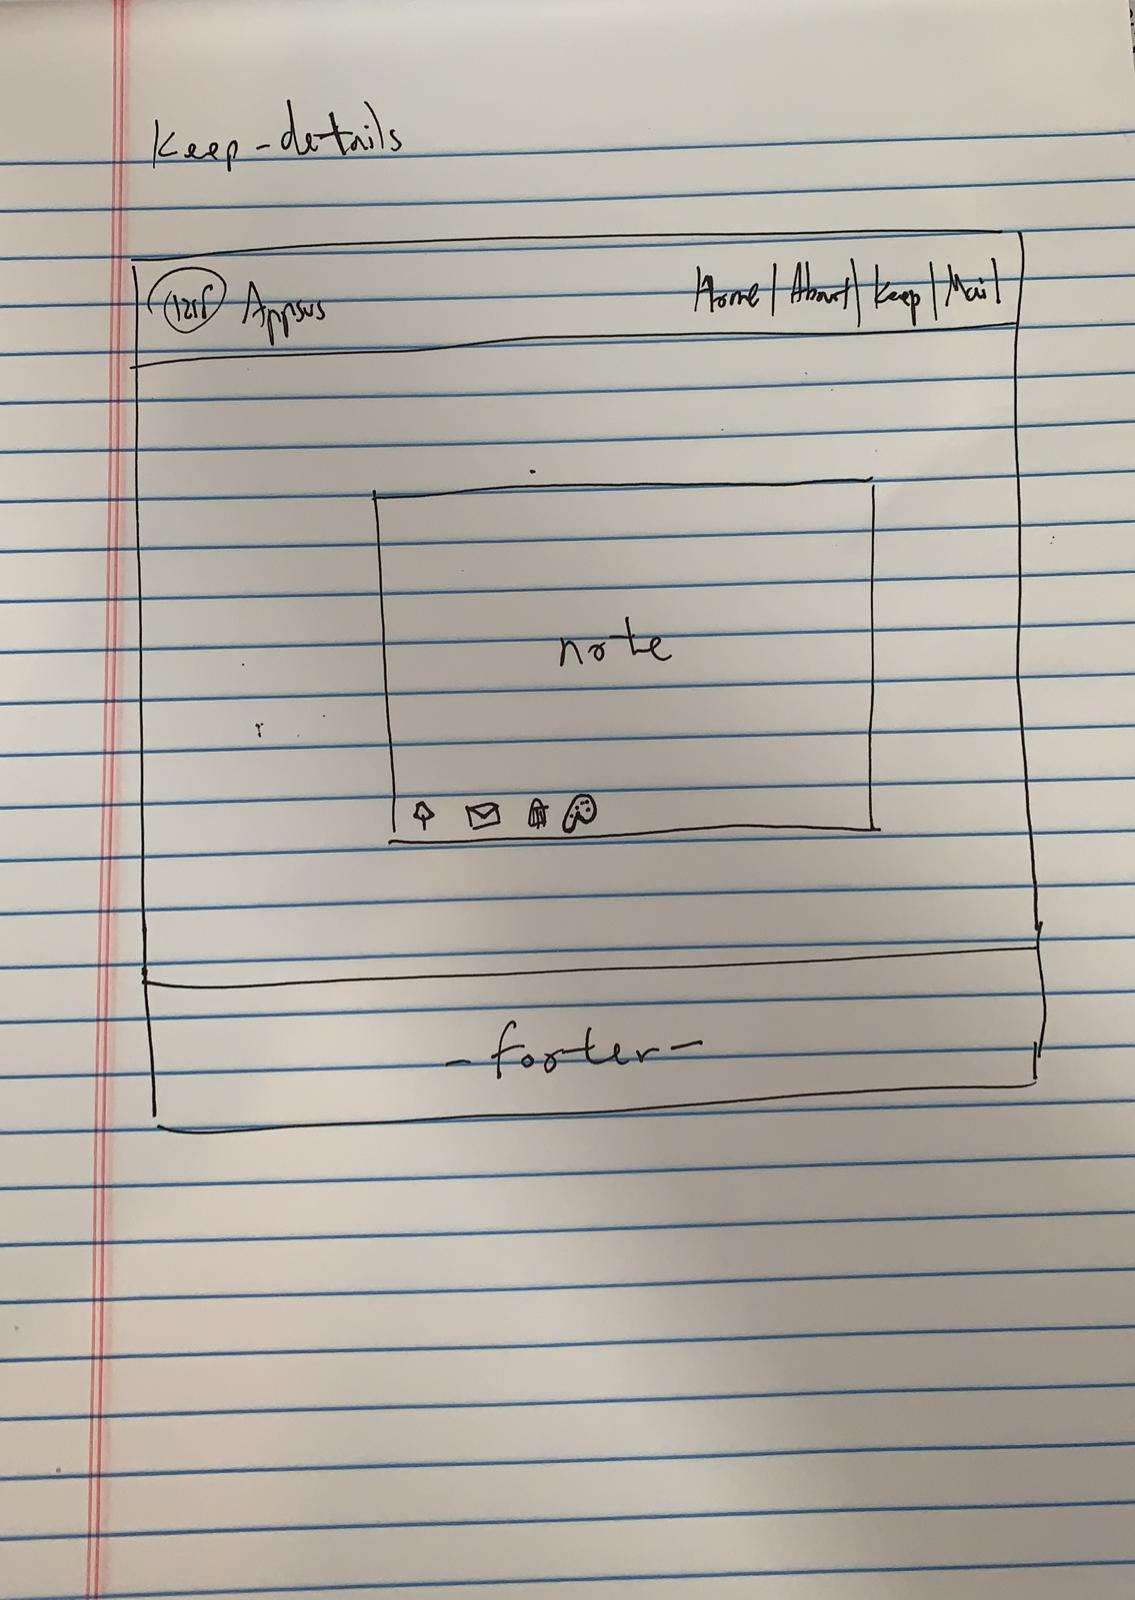 Keep-details
Appsus Home | About | Keep | Mail
note
-footer-